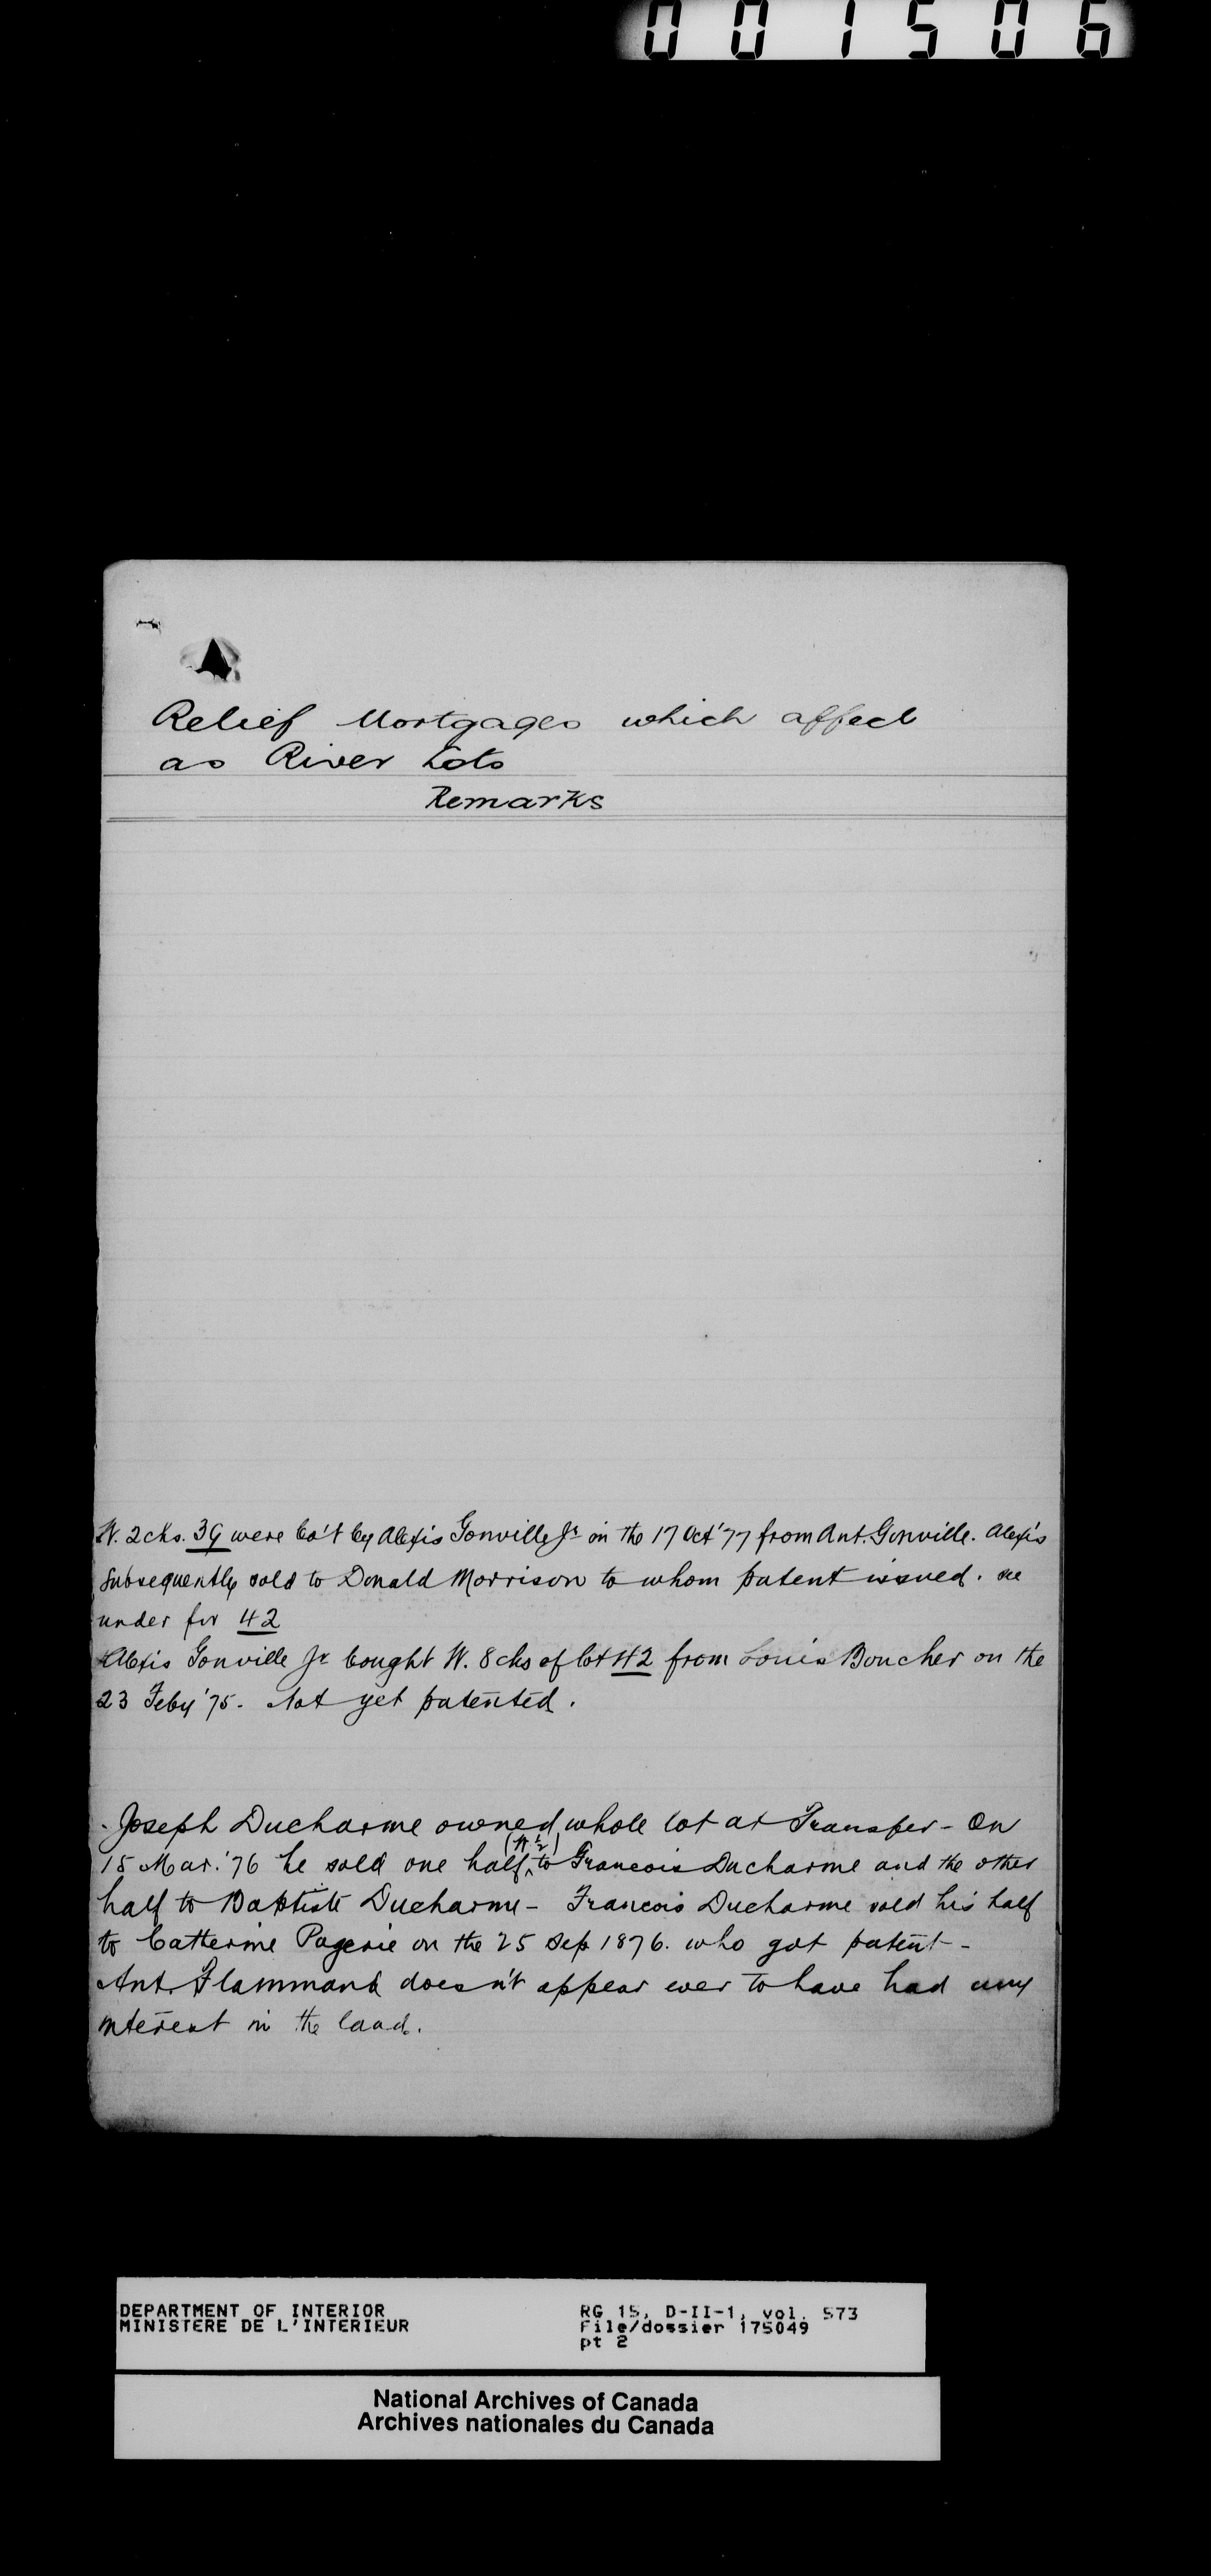 001506
Relief Mortgages which affect
as River Lots
Remarks
W. 2 chs. 39 were bo't by Alexis Gonville Jr in the 17 Oct '77 from Ant. Gonville. Alexis
subsequently sold to Donald Morrison to whom patent issued. see
under for 42
Alexis Gonville Jr bought W. 8 chs of lot 42 from Louis Boucher on the
23 Feby '75. Not yet patented.
Joseph Ducharme owned whole lot at Transfer - On
15 Mar. '76 he sold one half to Francois Ducharme and the other
half to Baptiste Ducharme - Francois Ducharme sold his half
to Catterine Pagerie on the 25 Sep 1876. who got patent -
Ant. Flammand doesn't appear ever to have had any
interest in the land.
DEPARTMENT OF INTERIOR
MINISTERE DE L'INTERIEUR
RG 15, D-II-1, vol. 573
File/dossier 175049
pt 2
National Archives of Canada
Archives nationales du Canada